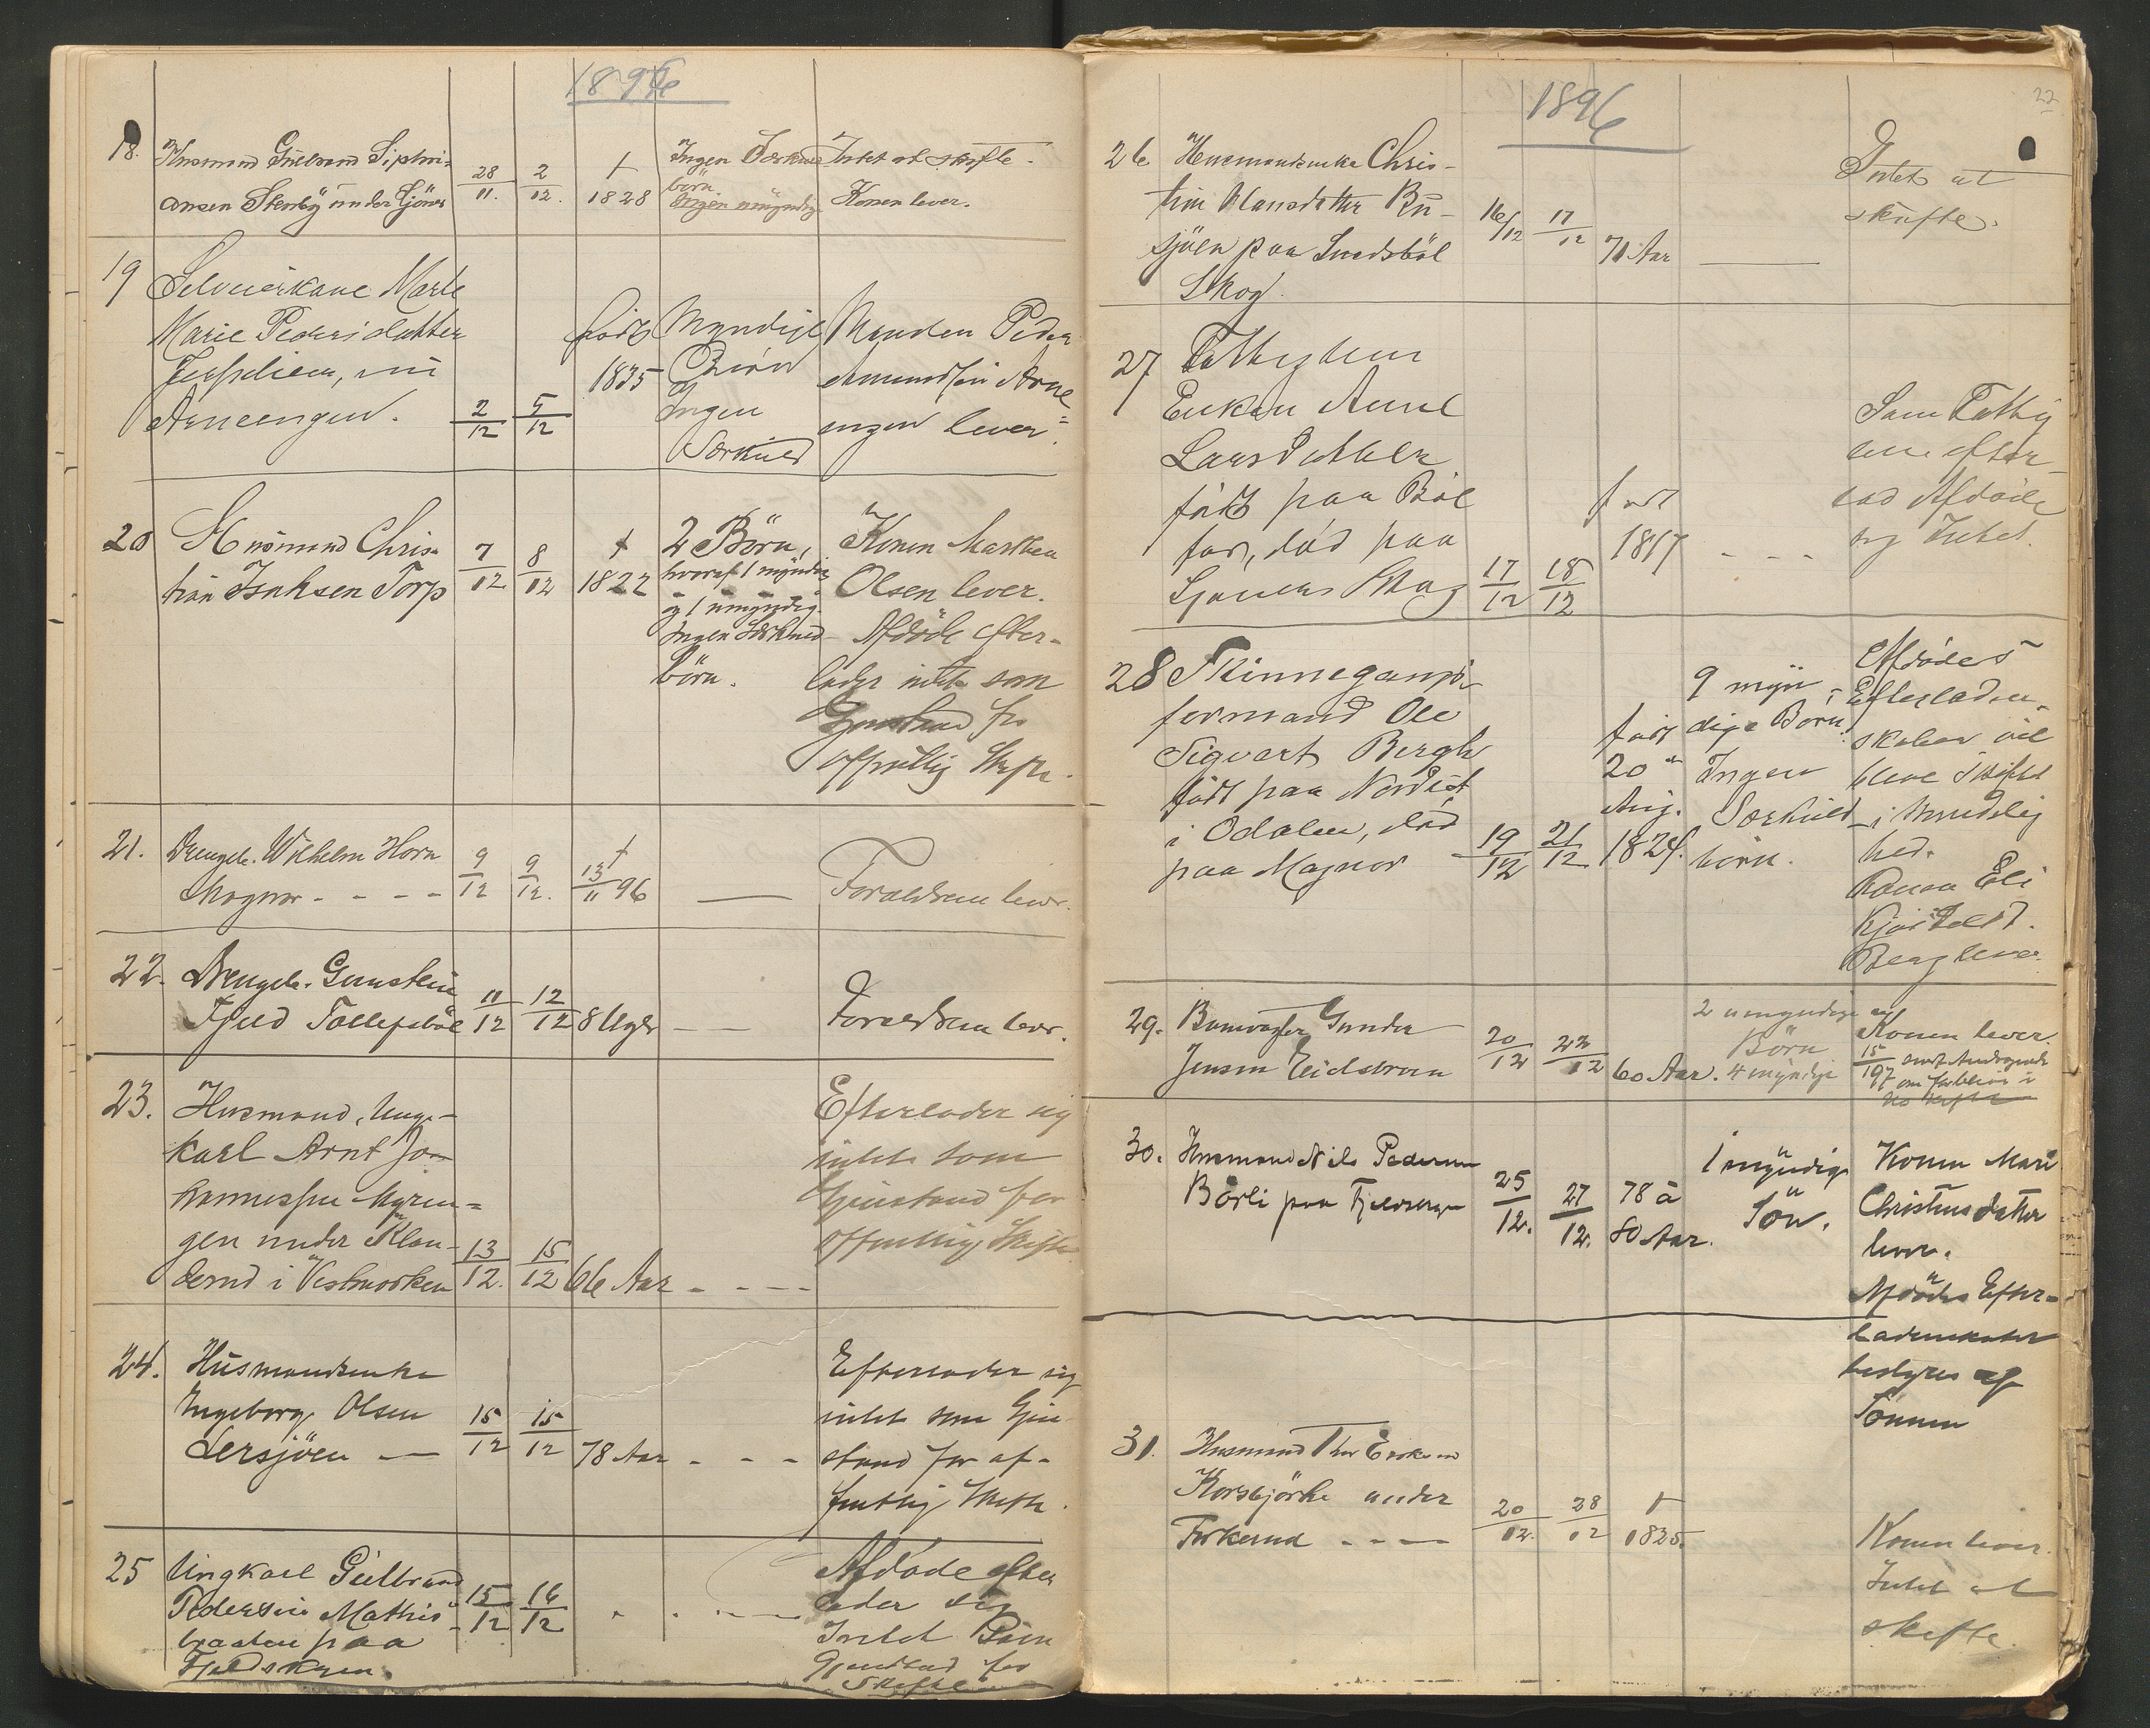 1896
18.
Husmand Gulbrand
ansen under
28/11. 2/12. † 1828
Ingen Særkuld
börn.
Ingen umyndig
Intet at skifte.
Konen lever.
19
Selveierkone Marte
Marie Pedersdatter
nu
Arneengen.
2/12 5/12
född
1835
Myndige
Börn
Ingen
Særkuld
Manden Peder
Amundsen Arne=
engen lever.
20
Husmand Chris-
tian Isaksen Torp
7/12 8/12 † 1822
2 Börn,
hvoraf 1 myndig
og 1 umyndig.
Ingen Særkuld-
börn.
Konen Marthea
Olsen lever.
Afdöde efter-
lader intet som
Gjenstand for
offentlig Skifte.
21.
Drengeb. Wilhelm Horn
Magnor - - - -
9/12 9/12. † 13/11 96
—
Forældrene lever.
22.
Drengeb. Gunstein
Fjeld Tollefsböl
11/12 12/12 8 Uger - -
Forældrene lever.
23.
Husmand, Unge-
karl Arnt Jo-
hannessen Myren=
gen under
i Vestmarken
13/12. 15/12 66 Aar - - - -
Efterlader sig
intet som
Gjenstand for
offentlig Skifte
24.
Husmandsenke
Ingeborg Olsen
Lersjöen —
15/12 15/12 78 Aar - - -
Efterlader sig
intet som Gjen
stand for of-
fentlig Skifte.
25
Ungkarl Gulbrand
Pedersen Mathis
braaten paa
Fjeldskogen.
15/12 16/12
Afdöde efter
lader sig
Intet som
Gjenstand for
Skifte
22
1896
26
Husmandsenke Chris-
tine Olausdatter Bu-
sjöen paa
Skog.
16/12 17/12 71 Aar —
Intet at
skifte.
27
Fattiglem
Enken Anne
Larsdatter
född paa Böl
död paa
Skog
17/12 18/12
född
18 7 - - -
Som Fattig
lem efter-
lod Afdöde
sig Intet.
28
formand Ole
Sigvart Bergh
född paa
i Odalen, död
paa Magnor
19/12 21/12
född
20de
Aug.
1824.
9 myn-
dige Börn.
Ingen
Særkuld-
börn.
Afdödes
Efterladen-
skaber vil
blive skiftet
i Mindelig
hed.
Konen Eli
Berg lever.
29.
Banevogter Gunder
Jensen
20/12 22/12 60 Aar.
2 umyndige og
Börn
4 myndige
Konen lever.
15/1 97 sendt
om forbleven i
30.
Husmand Nils Pedersen
Börli paa
25/12. 27/12. 78 à
80 Aar.
1 myndig
Sön.
Konen Mari
Christensdatter
lever.
Afdödes Efter-
ladenskaber
bestyres af
Sönnen
31.
Husmand Thor Eriksen
Korsbjörke under
- - -
20/12. 28/12 † 1825.
Konen lever.
Intet at
skifte.